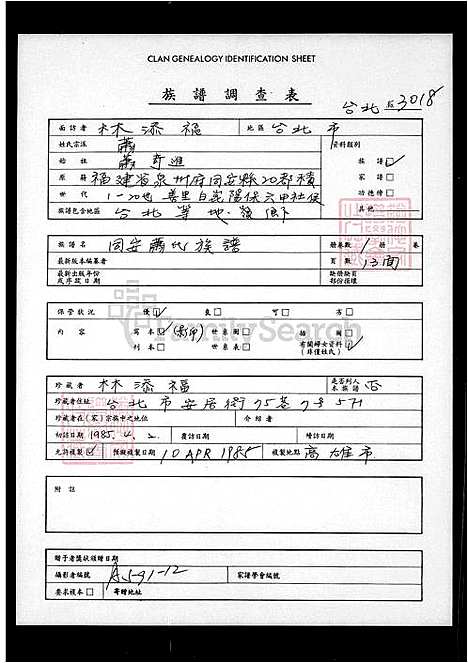 CLAN GENEALOGY IDENTIFICATION SHEET
族譜調查表
台北 3018
面訪者 林添福 地區 台北市
姓氏宗派 蕭 資料類別
始祖 蕭奇進 族譜☑
原籍 福建省泉州府同安縣20都積 家譜☐
世代 1-20世 善里白崑陽保六甲社保 功德榜☐
族譜包含地區 台北等地 其他
族譜名 同安蕭氏族譜 冊卷數 1 冊 卷
最新版本編纂者 頁數 13面
最新出版年份或序放日期 缺冊缺頁部份損壞
保管狀況 優☑ 良☐ 可☐ 方☐
內容 寫本☑(影印) 世系圖☐ 插圖☐
刊本☐ 世系表☐ 有關婦女資料☑(非僅姓氏)
FamilySearch
珍藏者 林添福 是否列入本族譜 否
珍藏者住址 台北市安居街75巷7号5H
珍藏者在(家)宗族中之地位 介紹者
初訪日期 1985.4.2. 覆訪日期 續訪日期
允許複製☑ 預擬複製日期 10 APR 1985 複製地點 高雄市
附註
贈予者獎狀頒贈日期
攝影者編號 AJ-91-12 家譜學會編號
要求複本☐ 寄贈地址